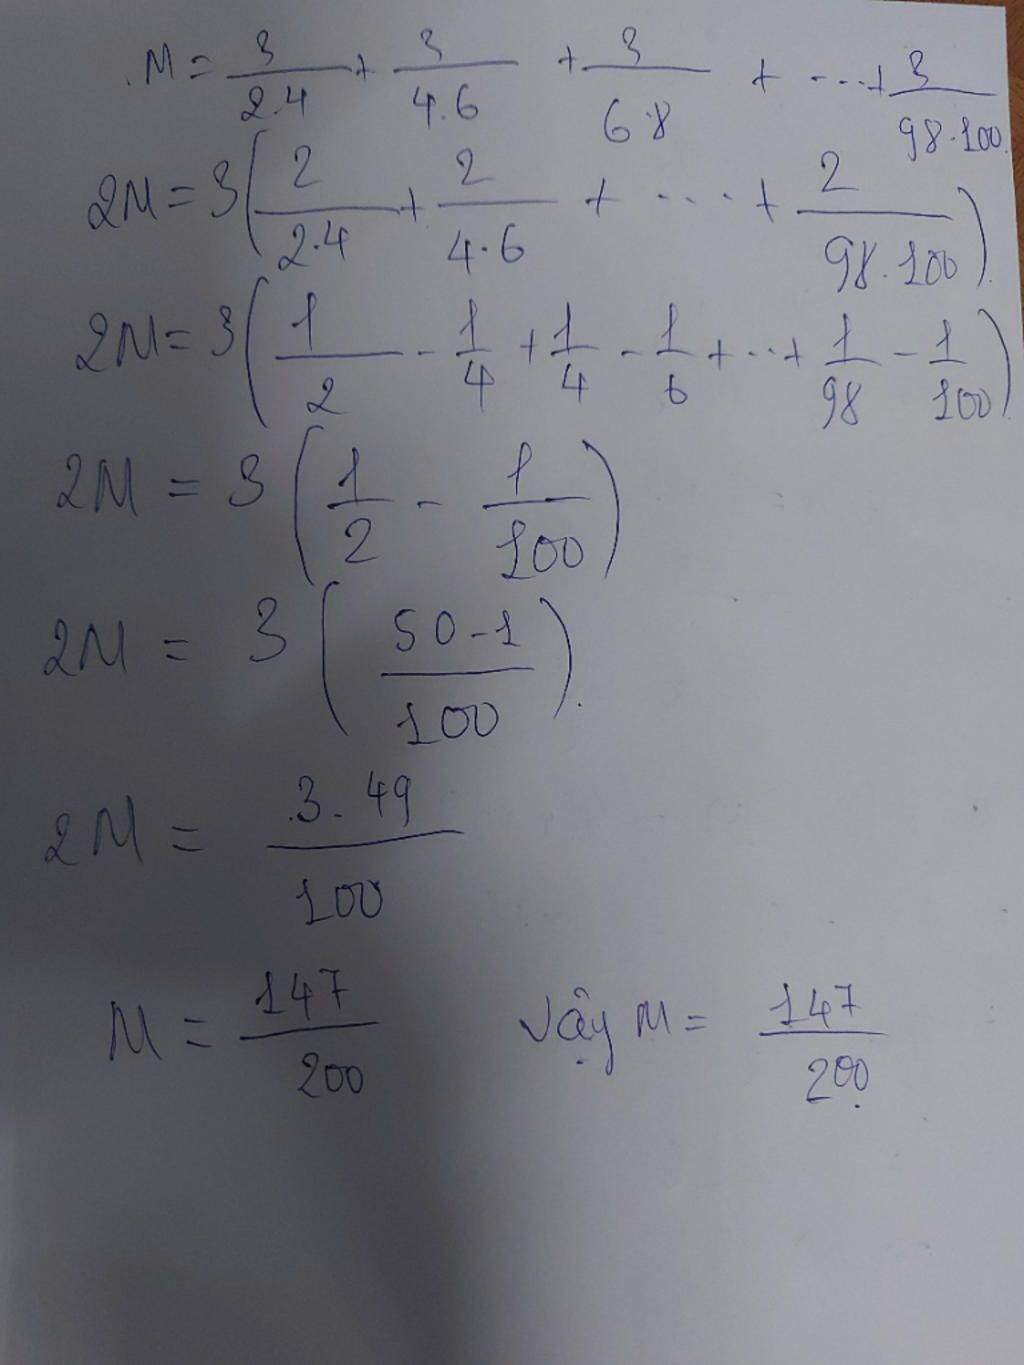 M = 3/2.4 + 3/4.6 + 3/6.8 + ... + 3/98.100
2M = 3(2/2.4 + 2/4.6 + .... + 2/98.100)
2M = 3(1/2 - 1/4 + 1/4 - 1/6 + ... + 1/98 - 1/100)
2M = 3(1/2 - 1/100)
2M = 3(50-1/100).
2M = 3.49/100
M = 147/200 Vậy M = 147/200